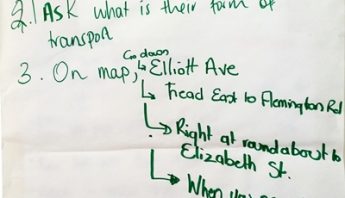 2. Ask what is their form of
transport
Go down
3. On map, Elliott Ave
Head East to Flemington Rd
Right at roundabout to
Elizabeth St.
When you